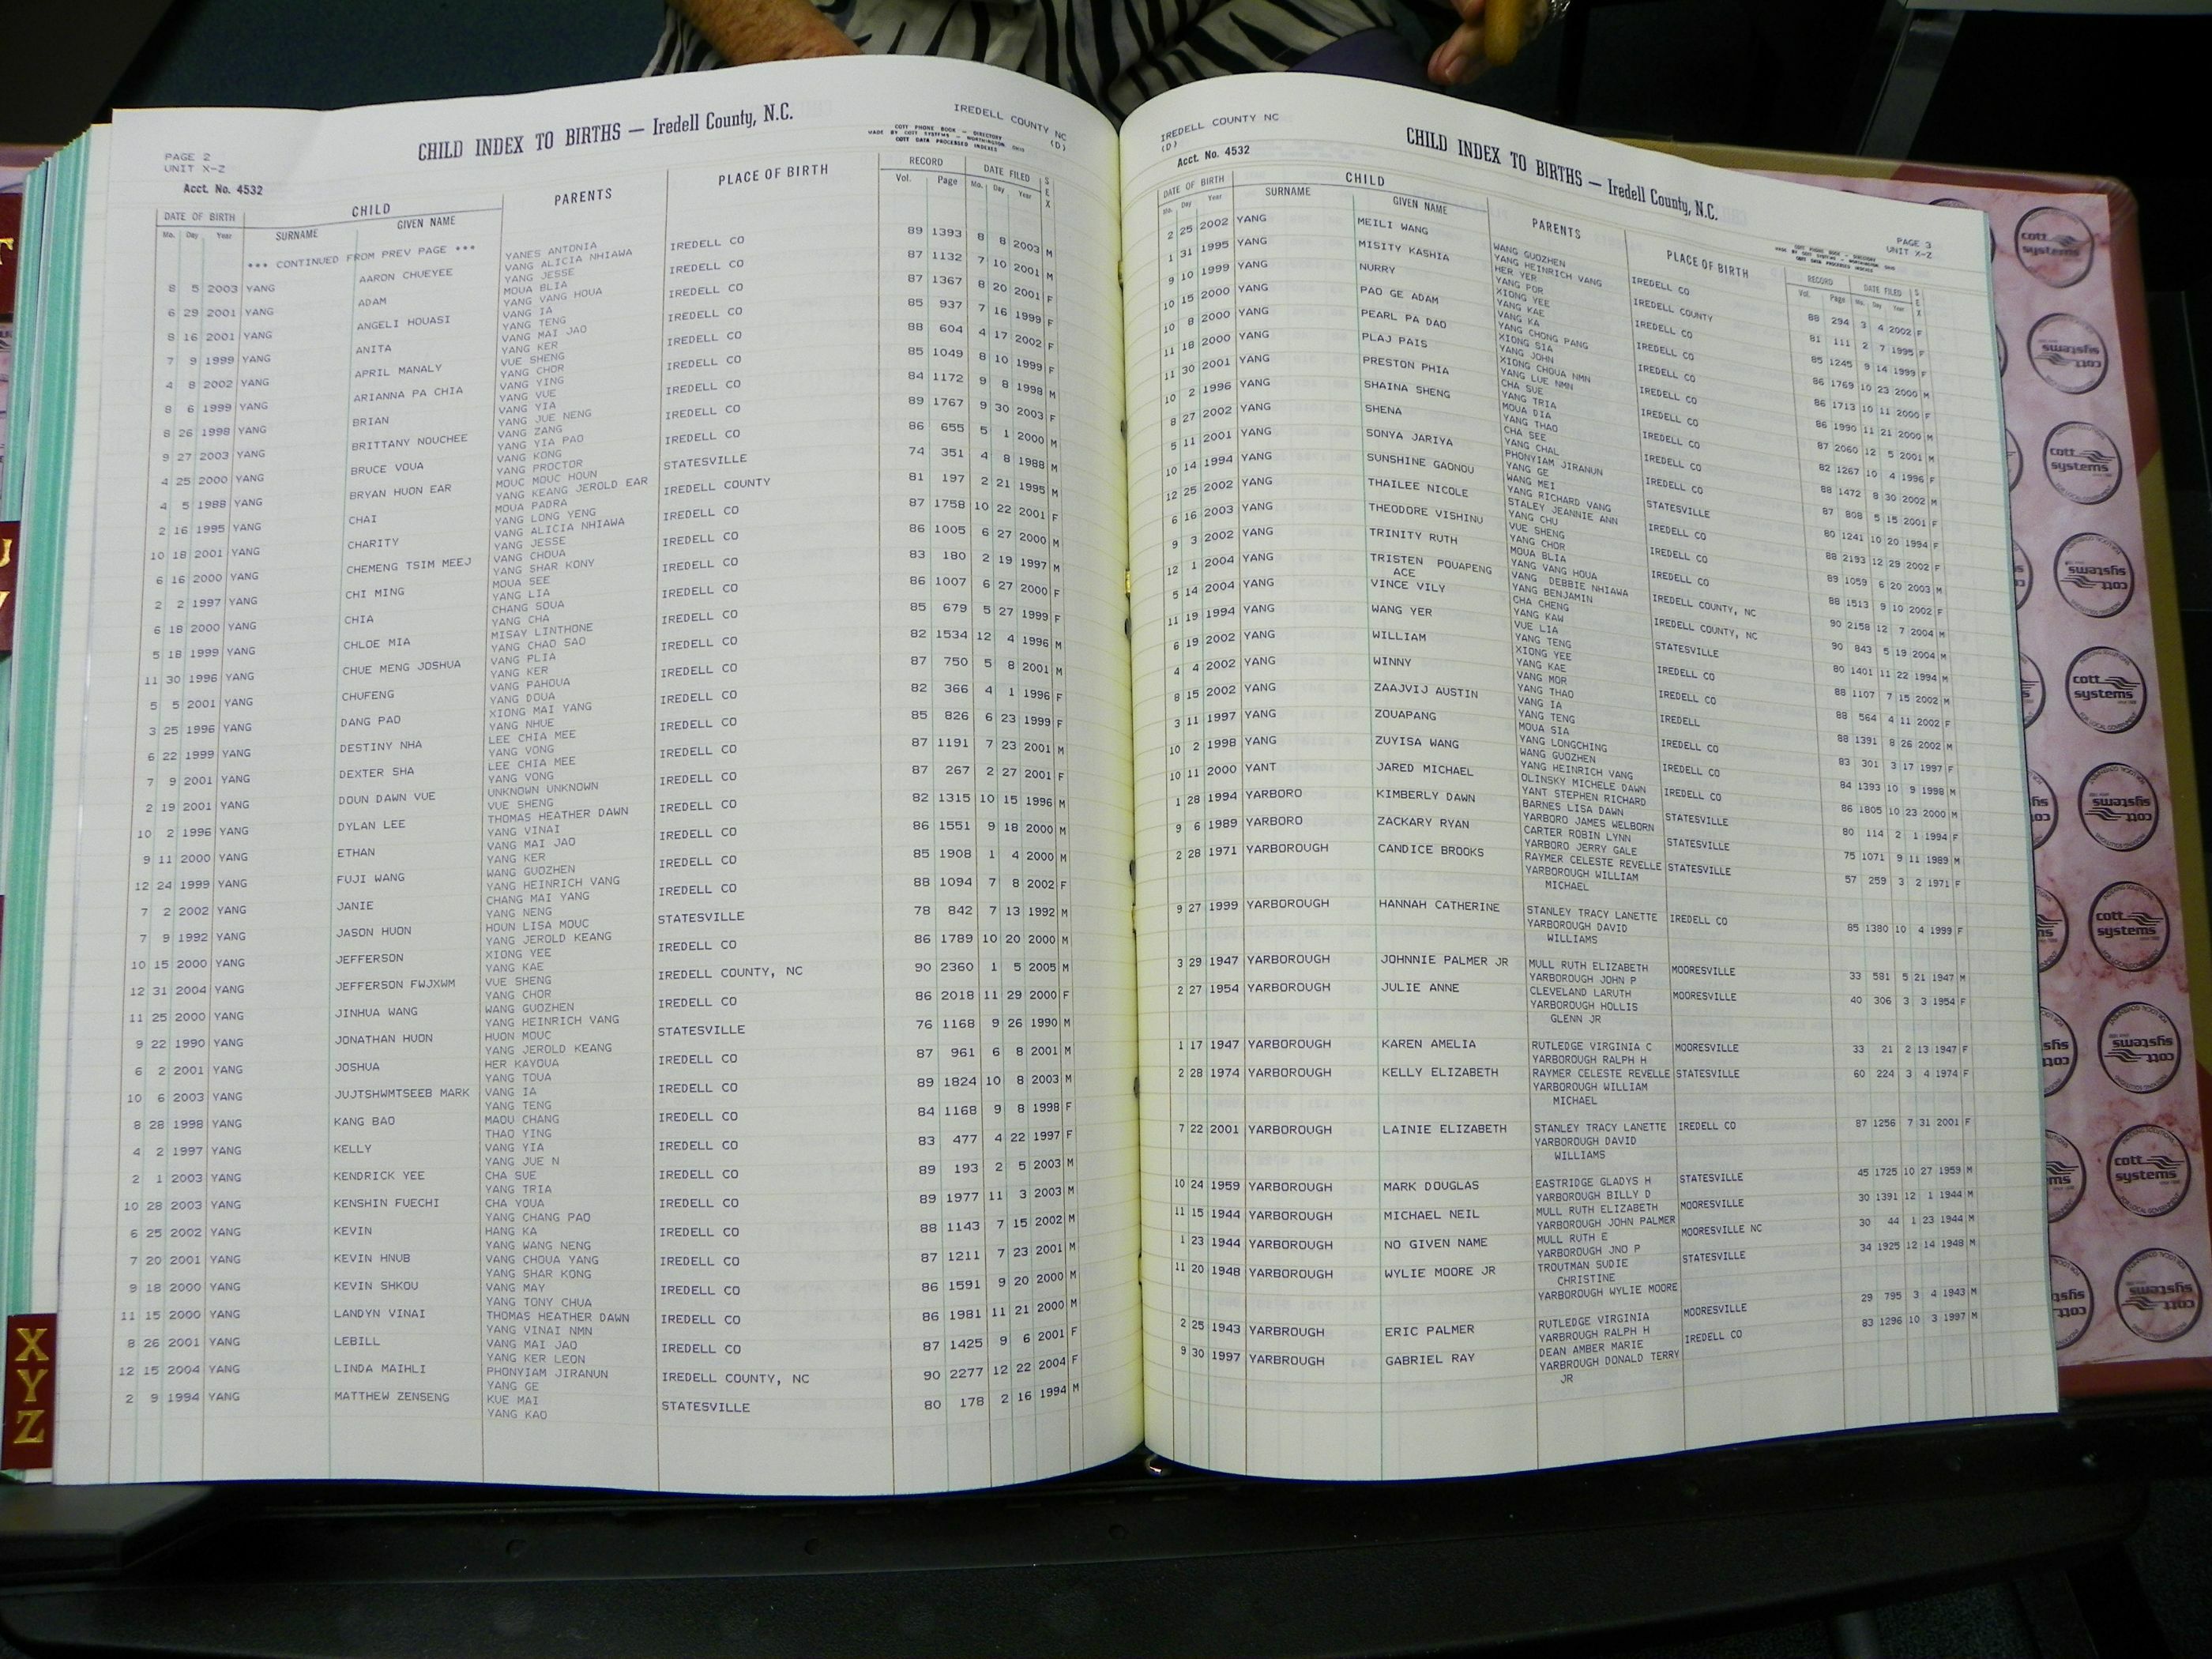 IREDELL COUNTY NC
(D)
CHILD INDEX TO BIRTHS — Iredell County, N.C.
COTT PHONE BOOK — DIRECTORY
MADE BY COTT SYSTEMS — WORTHINGTON, OHIO
COTT DATA PROCESSED INDEXES
PAGE 2
UNIT X-Z
Acct. No. 4532
DATE OF BIRTH CHILD PARENTS PLACE OF BIRTH RECORD DATE FILED SEX
Mo. Day Year SURNAME GIVEN NAME Vol. Page Mo. Day Year
YANES ANTONIA
*** CONTINUED FROM PREV PAGE ***
8 5 2003 YANG AARON CHUEYEE VANG ALICIA NHIAWA IREDELL CO 89 1393 8 8 2003 M
YANG JESSE
6 29 2001 YANG ADAM MOUA BLIA IREDELL CO 87 1132 7 10 2001 M
YANG VANG HOUA
8 16 2001 YANG ANGELI HOUASI VANG IA IREDELL CO 87 1367 8 20 2001 F
YANG TENG
7 9 1999 YANG ANITA VANG MAI JAO IREDELL CO 85 937 7 16 1999 F
YANG KER
4 8 2002 YANG APRIL MANALY VUE SHENG IREDELL CO 88 604 4 17 2002 F
YANG CHOR
8 6 1999 YANG ARIANNA PA CHIA VANG YING IREDELL CO 85 1049 8 10 1999 F
YANG VUE
8 26 1998 YANG BRIAN VANG YIA IREDELL CO 84 1172 9 8 1998 M
YANG JUE NENG
9 27 2003 YANG BRITTANY NOUCHEE VANG ZANG IREDELL CO 89 1767 9 30 2003 F
YANG YIA PAO
4 25 2000 YANG BRUCE VOUA YANG KONG IREDELL CO 86 655 5 1 2000 M
YANG PROCTOR
4 5 1988 YANG BRYAN HUON EAR MOUC MOUC HOUN STATESVILLE 74 351 4 8 1988 M
YANG KEANG JEROLD EAR
2 16 1995 YANG CHAI MOUA PADRA IREDELL COUNTY 81 197 2 21 1995 M
YANG LONG YENG
10 18 2001 YANG CHARITY VANG ALICIA NHIAWA IREDELL CO 87 1758 10 22 2001 F
YANG JESSE
6 16 2000 YANG CHEMENG TSIM MEEJ VANG CHOUA IREDELL CO 86 1005 6 27 2000 M
YANG SHAR KONY
2 2 1997 YANG CHI MING MOUA SEE IREDELL CO 83 180 2 19 1997 M
YANG LIA
6 18 2000 YANG CHIA CHANG SOUA IREDELL CO 86 1007 6 27 2000 F
YANG CHA
5 18 1999 YANG CHLOE MIA MISAY LINTHONE IREDELL CO 85 679 5 27 1999 F
YANG CHAO SAO
11 30 1996 YANG CHUE MENG JOSHUA VANG PLIA IREDELL CO 82 1534 12 4 1996 M
YANG KER
5 5 2001 YANG CHUFENG VANG PAHOUA IREDELL CO 87 750 5 8 2001 M
YANG DOUA
3 25 1996 YANG DANG PAO XIONG MAI YANG IREDELL CO 82 366 4 1 1996 F
YANG NHUE
6 22 1999 YANG DESTINY NHA LEE CHIA MEE IREDELL CO 85 826 6 23 1999 F
YANG VONG
7 9 2001 YANG DEXTER SHA LEE CHIA MEE IREDELL CO 87 1191 7 23 2001 M
YANG VONG
2 19 2001 YANG DOUN DAWN VUE UNKNOWN UNKNOWN IREDELL CO 87 267 2 27 2001 F
VUE SHENG
10 2 1996 YANG DYLAN LEE THOMAS HEATHER DAWN IREDELL CO 82 1315 10 15 1996 M
YANG VINAI
9 11 2000 YANG ETHAN VANG MAI JAO IREDELL CO 86 1551 9 18 2000 M
YANG KER
12 24 1999 YANG FUJI WANG WANG GUOZHEN IREDELL CO 85 1908 1 4 2000 M
YANG HEINRICH VANG
7 2 2002 YANG JANIE CHANG MAI YANG IREDELL CO 88 1094 7 8 2002 F
YANG NENG
7 9 1992 YANG JASON HUON HOUN LISA MOUC STATESVILLE 78 842 7 13 1992 M
YANG JEROLD KEANG
10 15 2000 YANG JEFFERSON XIONG YEE IREDELL CO 86 1789 10 20 2000 M
YANG KAE
12 31 2004 YANG JEFFERSON FWJXWM VUE SHENG IREDELL COUNTY, NC 90 2360 1 5 2005 M
YANG CHOR
11 25 2000 YANG JINHUA WANG WANG GUOZHEN IREDELL CO 86 2018 11 29 2000 F
YANG HEINRICH VANG
9 22 1990 YANG JONATHAN HUON HUON MOUC STATESVILLE 76 1168 9 26 1990 M
YANG JEROLD KEANG
6 2 2001 YANG JOSHUA HER KAYOUA IREDELL CO 87 961 6 8 2001 M
YANG TOUA
10 6 2003 YANG JUJTSHWMTSEEB MARK VANG IA IREDELL CO 89 1824 10 8 2003 M
YANG TENG
8 28 1998 YANG KANG BAO MAOU CHANG IREDELL CO 84 1168 9 8 1998 F
THAO YING
4 2 1997 YANG KELLY VANG YIA IREDELL CO 83 477 4 22 1997 F
YANG JUE N
2 1 2003 YANG KENDRICK YEE CHA SUE IREDELL CO 89 193 2 5 2003 M
YANG TRIA
10 28 2003 YANG KENSHIN FUECHI CHA YOUA IREDELL CO 89 1977 11 3 2003 M
YANG CHANG PAO
6 25 2002 YANG KEVIN HANG KA IREDELL CO 88 1143 7 15 2002 M
YANG WANG NENG
7 20 2001 YANG KEVIN HNUB VANG CHOUA YANG IREDELL CO 87 1211 7 23 2001 M
YANG SHAR KONG
9 18 2000 YANG KEVIN SHKOU VANG MAY IREDELL CO 86 1591 9 20 2000 M
YANG TONY CHUA
11 15 2000 YANG LANDYN VINAI THOMAS HEATHER DAWN IREDELL CO 86 1981 11 21 2000 M
YANG VINAI NMN
8 26 2001 YANG LEBILL VANG MAI JAO IREDELL CO 87 1425 9 6 2001 F
YANG KER LEON
12 15 2004 YANG LINDA MAIHLI PHONYIAM JIRANUN IREDELL COUNTY, NC 90 2277 12 22 2004 F
YANG GE
2 9 1994 YANG MATTHEW ZENSENG KUE MAI STATESVILLE 80 178 2 16 1994 M
YANG KAO
X
Y
Z
IREDELL COUNTY NC
(D)
Acct. No. 4532
CHILD INDEX TO BIRTHS — Iredell County, N.C.
COTT PHONE BOOK — DIRECTORY
MADE BY COTT SYSTEMS — WORTHINGTON, OHIO
COTT DATA PROCESSED INDEXES
PAGE 3
UNIT X-Z
DATE OF BIRTH CHILD PARENTS PLACE OF BIRTH RECORD DATE FILED SEX
Mo. Day Year SURNAME GIVEN NAME Vol. Page Mo. Day Year
2 25 2002 YANG MEILI WANG WANG GUOZHEN IREDELL CO 88 294 3 4 2002 F
YANG HEINRICH VANG
1 31 1995 YANG MISITY KASHIA HER YER IREDELL COUNTY 81 111 2 7 1995 F
YANG POR
9 10 1999 YANG NURRY XIONG YEE IREDELL CO 85 1245 9 14 1999 F
YANG KAE
10 15 2000 YANG PAO GE ADAM VANG KA IREDELL CO 86 1769 10 23 2000 M
YANG CHONG PANG
10 8 2000 YANG PEARL PA DAO XIONG SIA IREDELL CO 86 1713 10 11 2000 F
YANG JOHN
11 18 2000 YANG PLAJ PAIS XIONG CHOUA NMN IREDELL CO 86 1990 11 21 2000 M
YANG LUE NMN
11 30 2001 YANG PRESTON PHIA CHA SUE IREDELL CO 87 2060 12 5 2001 M
YANG TRIA
10 2 1996 YANG SHAINA SHENG MOUA DIA IREDELL CO 82 1267 10 4 1996 F
YANG THAO
8 27 2002 YANG SHENA CHA SEE IREDELL CO 88 1472 8 30 2002 M
YANG CHAL
5 11 2001 YANG SONYA JARIYA PHONYIAM JIRANUN IREDELL CO 87 808 5 15 2001 F
YANG GE
10 14 1994 YANG SUNSHINE GAONOU WANG MEI STATESVILLE 80 1241 10 20 1994 F
YANG RICHARD VANG
12 25 2002 YANG THAILEE NICOLE STALEY JEANNIE ANN IREDELL CO 88 2193 12 29 2002 F
YANG CHU
6 16 2003 YANG THEODORE VISHINU VUE SHENG IREDELL CO 89 1059 6 20 2003 M
YANG CHOR
9 3 2002 YANG TRINITY RUTH MOUA BLIA IREDELL CO 88 1513 9 10 2002 F
YANG VANG HOUA
12 1 2004 YANG TRISTEN POUAPENG VANG DEBBIE NHIAWA IREDELL COUNTY, NC 90 2158 12 7 2004 M
ACE YANG BENJAMIN
5 14 2004 YANG VINCE VILY CHA CHENG IREDELL COUNTY, NC 90 843 5 19 2004 M
YANG KAW
11 19 1994 YANG WANG YER VUE LIA STATESVILLE 80 1401 11 22 1994 M
YANG TENG
6 19 2002 YANG WILLIAM XIONG YEE IREDELL CO 88 1107 7 15 2002 M
YANG KAE
4 4 2002 YANG WINNY VANG MOR IREDELL CO 88 564 4 11 2002 F
YANG THAO
8 15 2002 YANG ZAAJVIJ AUSTIN VANG IA IREDELL 88 1391 8 26 2002 M
YANG TENG
3 11 1997 YANG ZOUAPANG MOUA SIA IREDELL CO 83 301 3 17 1997 F
YANG LONGCHING
10 2 1998 YANG ZUYISA WANG WANG GUOZHEN IREDELL CO 84 1393 10 9 1998 M
YANG HEINRICH VANG
10 11 2000 YANT JARED MICHAEL OLINSKY MICHELE DAWN IREDELL CO 86 1805 10 23 2000 M
YANT STEPHEN RICHARD
1 28 1994 YARBORO KIMBERLY DAWN BARNES LISA DAWN STATESVILLE 80 114 2 1 1994 F
YARBORO JAMES WELBORN
9 6 1989 YARBORO ZACKARY RYAN CARTER ROBIN LYNN STATESVILLE 75 1071 9 11 1989 M
YARBORO JERRY GALE
2 28 1971 YARBOROUGH CANDICE BROOKS RAYMER CELESTE REVELLE STATESVILLE 57 259 3 2 1971 F
YARBOROUGH WILLIAM
MICHAEL
9 27 1999 YARBOROUGH HANNAH CATHERINE STANLEY TRACY LANETTE IREDELL CO 85 1380 10 4 1999 F
YARBOROUGH DAVID
WILLIAMS
3 29 1947 YARBOROUGH JOHNNIE PALMER JR MULL RUTH ELIZABETH MOORESVILLE 33 581 5 21 1947 M
YARBOROUGH JOHN P
2 27 1954 YARBOROUGH JULIE ANNE CLEVELAND LARUTH MOORESVILLE 40 306 3 3 1954 F
YARBOROUGH HOLLIS
GLENN JR
1 17 1947 YARBOROUGH KAREN AMELIA RUTLEDGE VIRGINIA C MOORESVILLE 33 21 2 13 1947 F
YARBOROUGH RALPH H
2 28 1974 YARBOROUGH KELLY ELIZABETH RAYMER CELESTE REVELLE STATESVILLE 60 224 3 4 1974 F
YARBOROUGH WILLIAM
MICHAEL
7 22 2001 YARBOROUGH LAINIE ELIZABETH STANLEY TRACY LANETTE IREDELL CO 87 1256 7 31 2001 F
YARBOROUGH DAVID
WILLIAMS
10 24 1959 YARBOROUGH MARK DOUGLAS EASTRIDGE GLADYS H STATESVILLE 45 1725 10 27 1959 M
YARBOROUGH BILLY D
11 15 1944 YARBOROUGH MICHAEL NEIL MULL RUTH ELIZABETH MOORESVILLE 30 1391 12 1 1944 M
YARBOROUGH JOHN PALMER
1 23 1944 YARBOROUGH NO GIVEN NAME MULL RUTH E MOORESVILLE NC 30 44 1 23 1944 M
YARBOROUGH JNO P
11 20 1948 YARBOROUGH WYLIE MOORE JR TROUTMAN SUDIE STATESVILLE 34 1925 12 14 1948 M
CHRISTINE
YARBOROUGH WYLIE MOORE
2 25 1943 YARBROUGH ERIC PALMER RUTLEDGE VIRGINIA MOORESVILLE 29 795 3 4 1943 M
YARBROUGH RALPH H
9 30 1997 YARBROUGH GABRIEL RAY DEAN AMBER MARIE IREDELL CO 83 1296 10 3 1997 M
YARBROUGH DONALD TERRY
JR
cott systems
cott systems
cott systems
cott systems
cott systems
cott systems
cott systems
cott systems
cott systems
cott systems